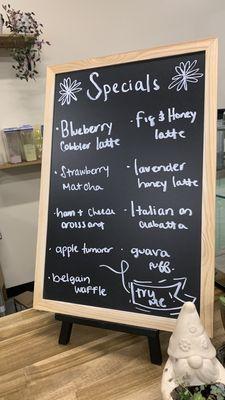 Specials
Blueberry
Cobbler latte
Strawberry
Matcha
ham + cheese
croissant
apple turnover
belgain
waffle
Fig & Honey
latte
lavender
honey latte
Italian on
ciabatta
guava
puff
try
me